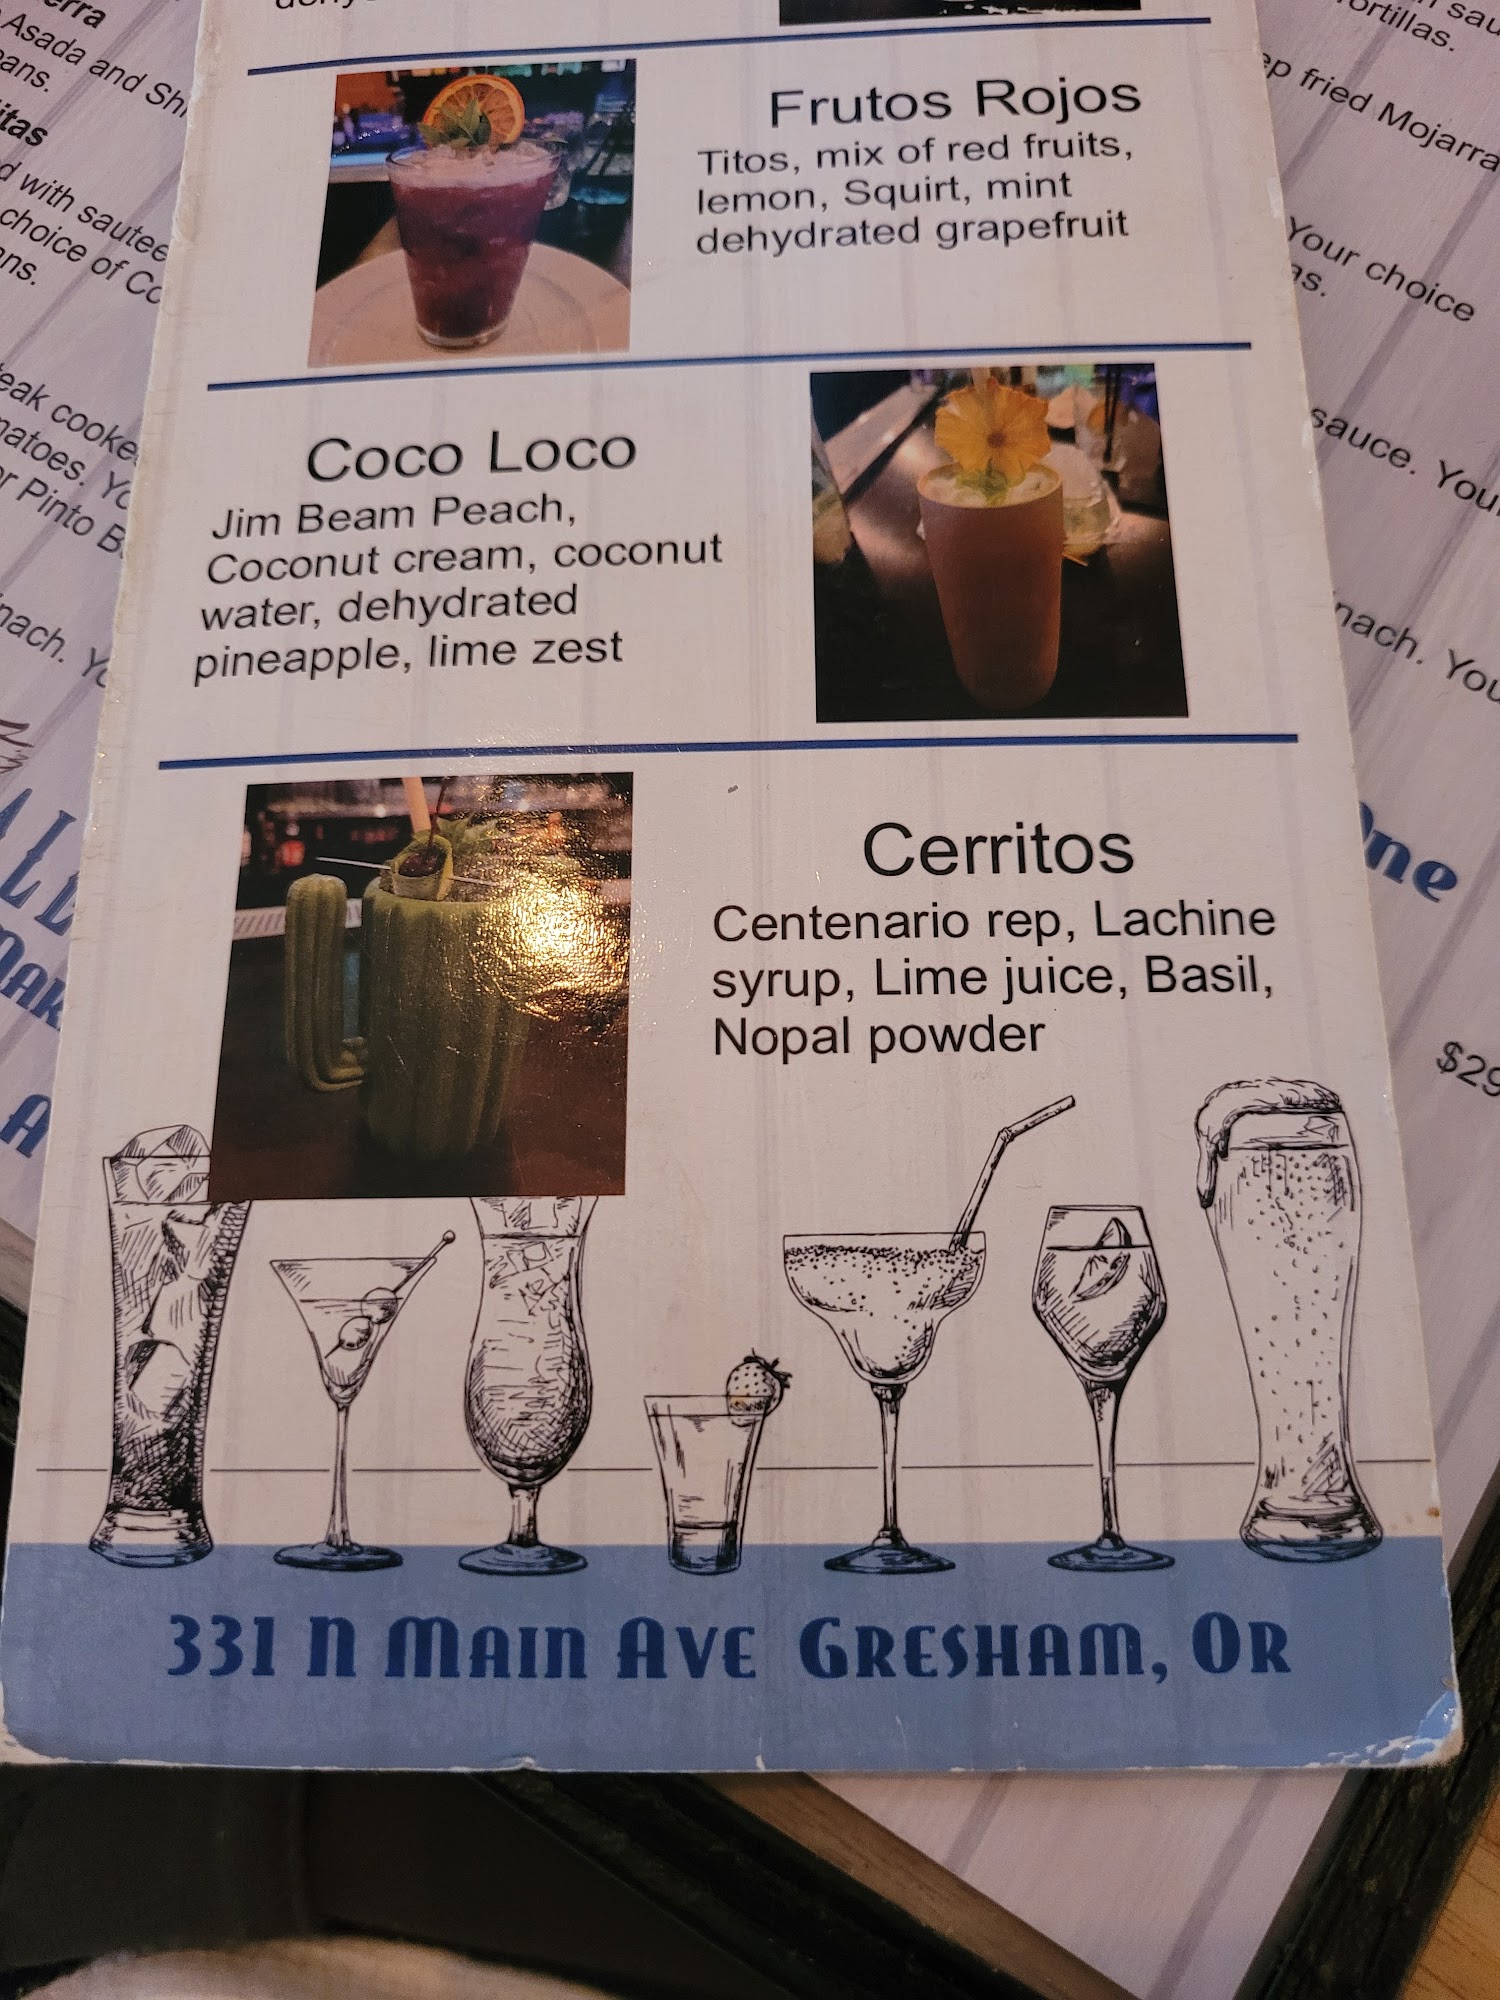 erra
Asada and Shr
eans.
itas
d with sautee
choice of Co
ns.
eak cooke
matoes. Yo
or Pinto B
nach. Yo
Frutos Rojos
Titos, mix of red fruits,
lemon, Squirt, mint
dehydrated grapefruit
Coco Loco
Jim Beam Peach,
Coconut cream, coconut
water, dehydrated
pineapple, lime zest
Cerritos
Centenario rep, Lachine
syrup, Lime juice, Basil,
Nopal powder
331 N Main Ave Gresham, Or
sau
ortillas.
ep fried Mojarra
Your choice
as.
sauce. Your
nach. You
One
$29